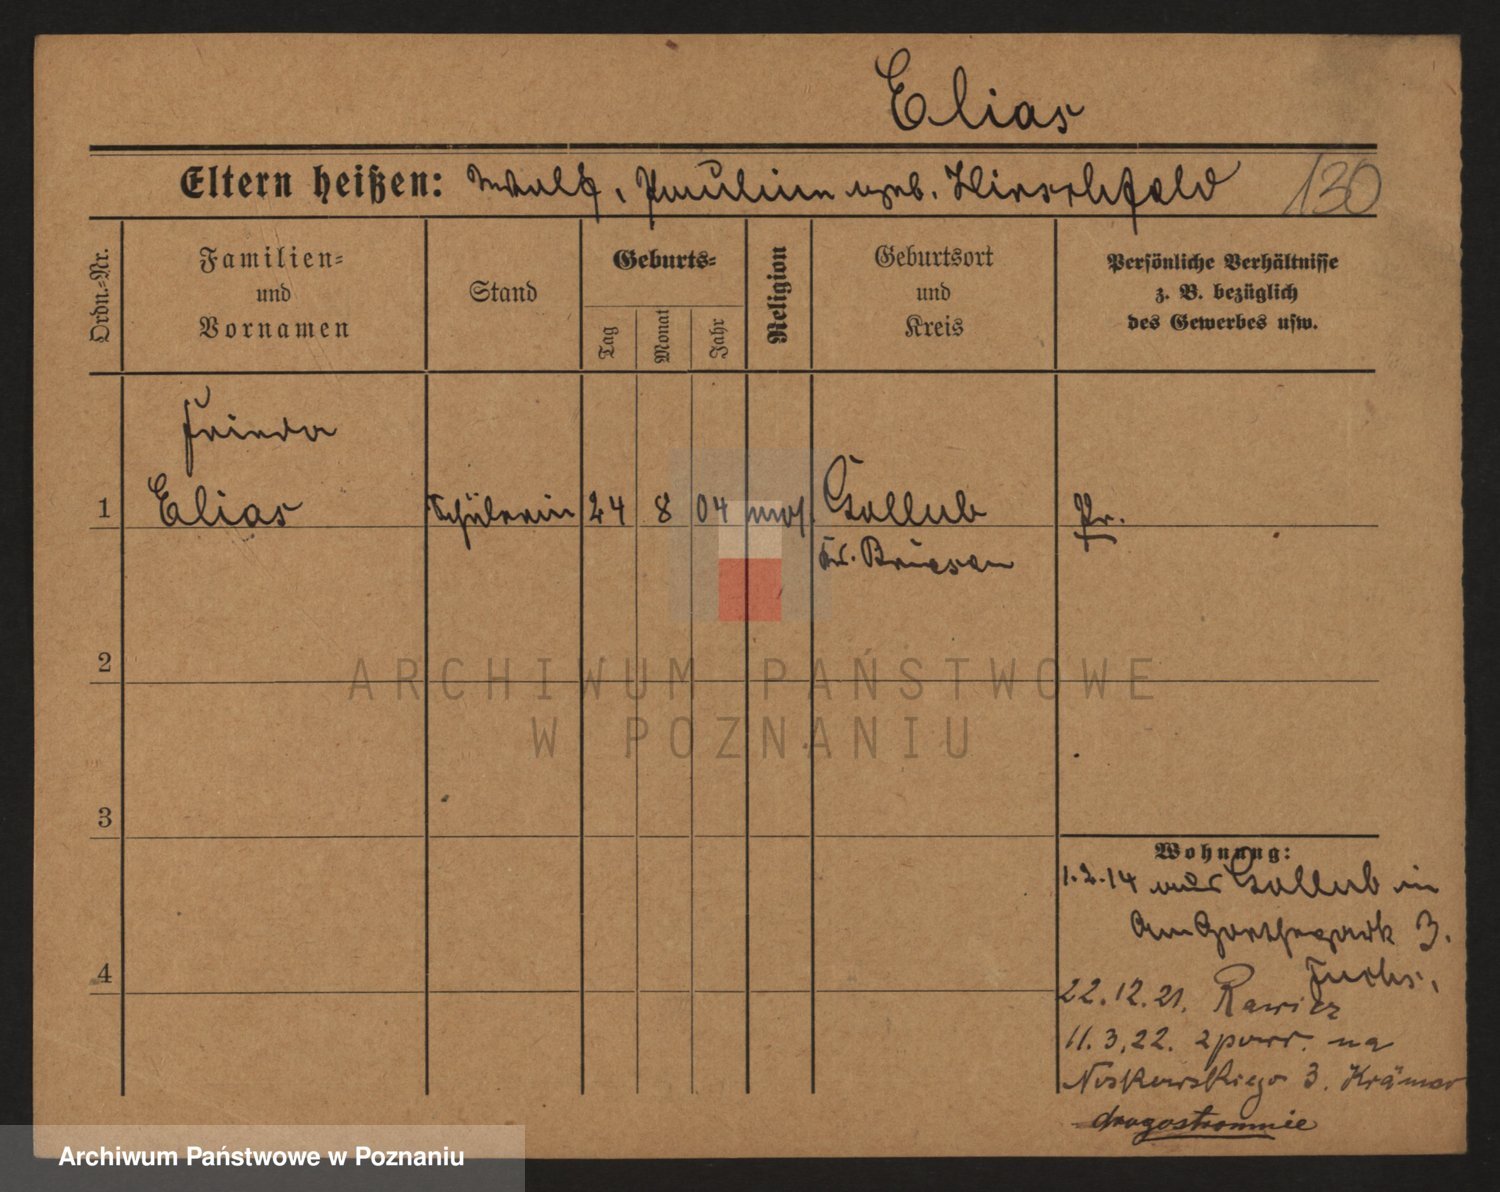 Elias
Eltern heißen: Wolf, Pauline geb. Hirschfeld 130
Ordn.-Nr.
Familien-
und
Vornamen
Stand
Geburts-
Tag
Monat
Jahr
Religion
Geburtsort
und
Kreis
Persönliche Verhältnisse
z. B. bezüglich
des Gewerbes usw.
Frieda
1 Elias Schülerin 24 8 04 mos. Gollub Pr.
Kr. Briesen
2
3
4
Wohnung:
1.2.14 aus Gollub in
Am Goethepark 3.
Fuchs.
22.12.21. Rawicz
11.3.22. z powr. na
Noskowskiego 3. Krämer
ARCHIWUM PAŃSTWOWE
W POZNANIU
Archiwum Państwowe w Poznaniu